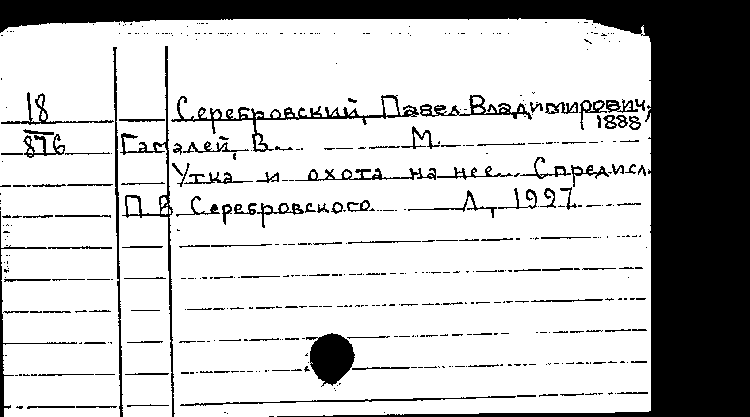 18
Серебровский, Павел Владимирович,
1888
876 Гамалей, В... М.
Утка и охота на нее... С предисл.
П. В. Серебровского Л., 1927